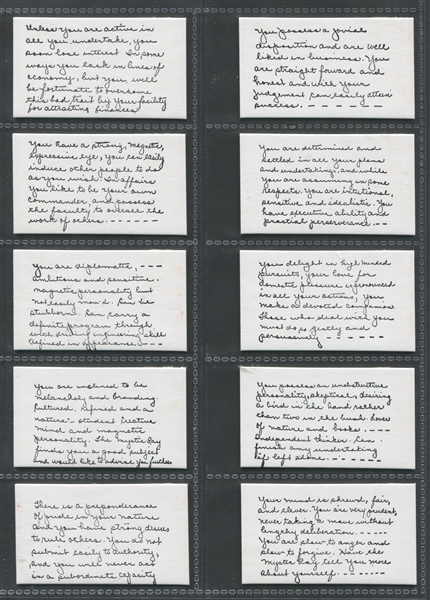 Unless you are active in
all you undertake, you
soon lose interest. In some
ways you lack in lines of
economy, but you will
be fortunate to overcome
this bad trait by your facility
for attracting finances
You possess a jovial
disposition and are well
liked in business. You
are straight forward and
honest and with your
judgement can easily attain
success. - - - - -
You have a strong, magnetic,
expressive eye, you can easily
induce other people to do
as you wish. In affairs
you like to be your own
commander, and possess
the faculty to oversee the
work of others. - - - - - -
You are determined and
settled in all your plans
and undertakings, and while
you are assuming in some
respects. You are intutional,
sensitive and idealistic. You
have executive ability and
practial perseverance - -
You are diplomatic, - - -
ambitious and sensitive.
magnetic personality but
not easily mov'd. Can be
stubborn. Can carry a
definite program through
with driving engineering skill
Refined in appearance. - - -
You delight in high minded
pursuits, your love for
domestic pleasure is pronounced
in all your actions, you
make a devoted companion
Those who deal with you
must do so gently and
persuasively - - - - -
You are inclined to be
melancholy and brooding.
Cultured, refined and a
nature-student Creative
mind and magnetic
personality. The Mystic Ray
finds you a good subject
and would like to advise you further
You possess an unobstructive
personality, skeptical, desiring
a bird in the hand rather
than two in the bush. Lover
of nature and books. - - - -
Independent thinker. Can
finish any undertaking
if left alone. - - - - -
There is a preponderance
of pride in your nature
and you have strong desires
to rule others. You do not
submit easily to authority,
and you will never act
in a subordinate capacity
Your mind is shrewd, fair,
and clever. You are very prudent,
never taking a move without
lengthy deliberation. - - - -
You are slow to anger and
slow to forgive. Have the
Mystic Ray tell you more
about yourself. - - - - - -